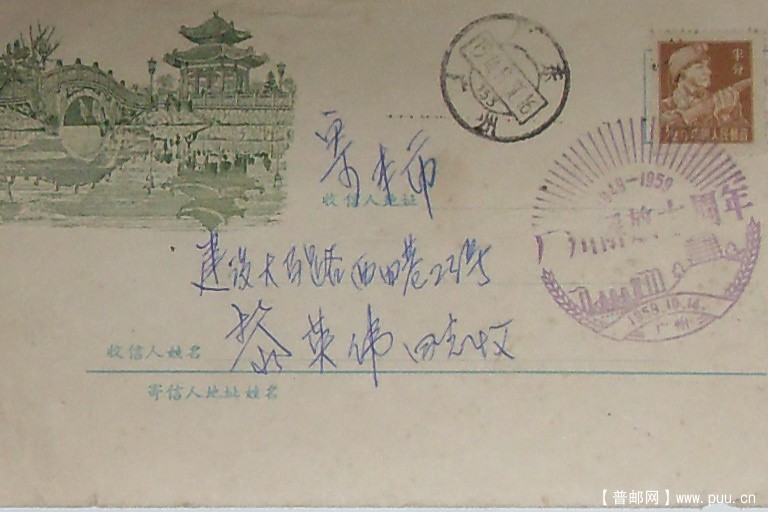 半分
广州
1949-1959
广州解放十周年
1959.10.14.
广州
本市
收信人地址
建设大马路西四巷22号
收信人姓名
黎英伟同志收
寄信人地址姓名
【普邮网】www.puu.cn